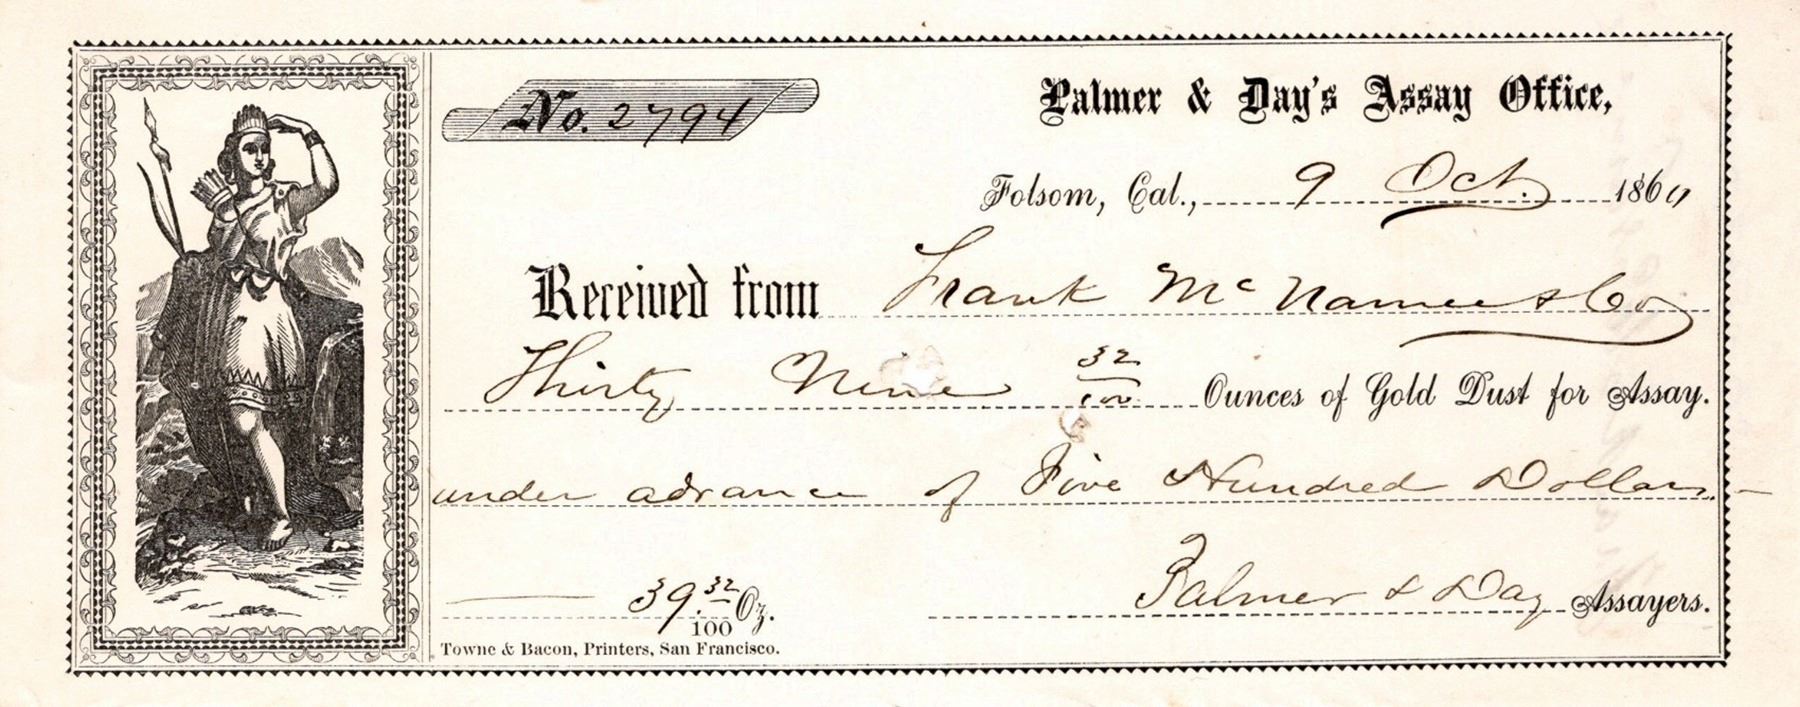 No. 2794
Palmer & Day's Assay Office,
Folsom, Cal., 9 Oct. 1860
Received from Frank McNamee & Co
Thirty Nine 32/100 Ounces of Gold Dust for Assay.
under advance of Five Hundred Dollars
39.32/100 Oz. Palmer & Day Assayers.
Towne & Bacon, Printers, San Francisco.